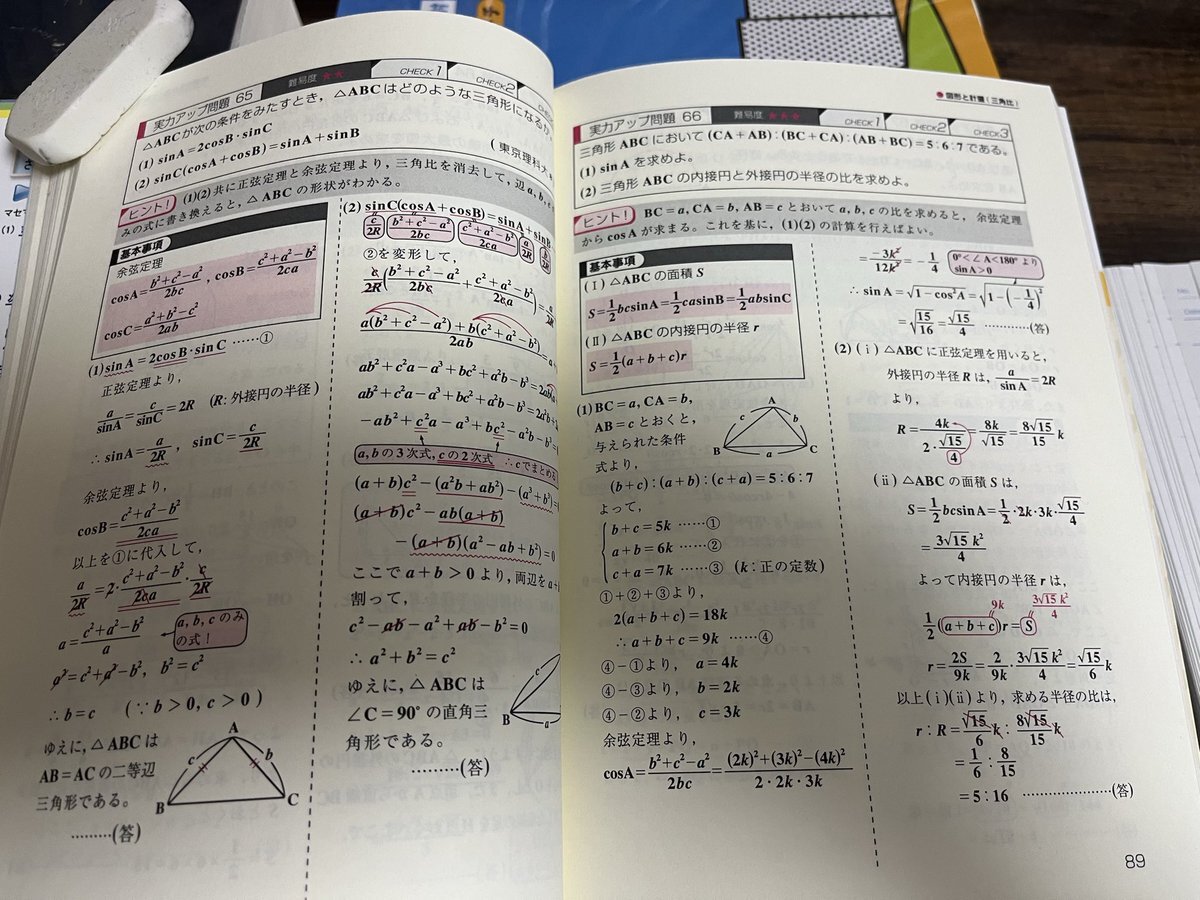 実力アップ問題 65 難易度 ★★ CHECK1 CHECK2
△ABCが次の条件をみたすとき，△ABCはどのような三角形になるか
(1) sinA=2cosB・sinC
(2) sinC(cosA+cosB)=sinA+sinB (東京理科大
ヒント！ (1)(2)共に正弦定理と余弦定理より，三角比を消去して，辺a, b, c
みの式に書き換えると，△ABCの形状がわかる。
基本事項
余弦定理
cosA=(b²+c²−a²)/2bc，cosB=(c²+a²−b²)/2ca
cosC=(a²+b²−c²)/2ab
(1) sinA=2cosB・sinC ……①
正弦定理より，
a/sinA=c/sinC=2R (R: 外接円の半径)
∴sinA=a/2R，sinC=c/2R
余弦定理より，
cosB=(c²+a²−b²)/2ca
以上を①に代入して，
a/2R=2・(c²+a²−b²)/2ca・c/2R
a=(c²+a²−b²)/a ← a, b, cのみの式！
a²=c²+a²−b²，b²=c²
∴b=c (∵b>0, c>0)
ゆえに，△ABCは
AB=ACの二等辺
三角形である。
………(答)
A
c b
B C
(2) sinC(cosA+cosB)=sinA+sinB
c/2R (b²+c²−a²)/2bc (c²+a²−b²)/2ca a/2R b/2R
②を変形して，
c/2R((b²+c²−a²)/2bc+(c²+a²−b²)/2ca)=
(a(b²+c²−a²)+b(c²+a²−b²))/2ab=a+
ab²+c²a−a³+bc²+a²b−b³=2ab(a
ab²+c²a−a³+bc²+a²b−b³=2a²b+
−ab²+c²a−a³+bc²−a²b−b³=
a, bの3次式，cの2次式 ∴cでまとめる
(a+b)c²−(a²b+ab²)−(a³+b³)=
(a+b)c²−ab(a+b)
−(a+b)(a²−ab+b²)=0
ここでa+b>0より，両辺をa+
割って，
c²−ab−a²+ab−b²=0
∴a²+b²=c²
ゆえに，△ABCは
∠C=90°の直角三
角形である。
………(答)
B a
図形と計量(三角比)
実力アップ問題 66 難易度 ★★★ CHECK1 CHECK2 CHECK3
三角形ABCにおいて(CA+AB):(BC+CA):(AB+BC)=5:6:7である。
(1) sinAを求めよ。
(2) 三角形ABCの内接円と外接円の半径の比を求めよ。
ヒント！ BC=a, CA=b, AB=cとおいてa, b, cの比を求めると，余弦定理
からcosAが求まる。これを基に，(1)(2)の計算を行えばよい。
基本事項
(Ⅰ) △ABCの面積S
S=1/2bcsinA=1/2casinB=1/2absinC
(Ⅱ) △ABCの内接円の半径r
S=1/2(a+b+c)r
(1) BC=a, CA=b,
AB=cとおくと，
与えられた条件
式より，
A
c b
B a C
(b+c):(a+b):(c+a)=5:6:7
よって，
b+c=5k ……①
a+b=6k ……②
c+a=7k ……③ (k: 正の定数)
①+②+③より，
2(a+b+c)=18k
∴a+b+c=9k ……④
④−①より，a=4k
④−③より，b=2k
④−②より，c=3k
余弦定理より，
cosA=(b²+c²−a²)/2bc=((2k)²+(3k)²−(4k)²)/2・2k・3k
=−3k²/12k²=−1/4 0°<∠A<180°より sinA>0
∴sinA=√(1−cos²A)=√(1−(−1/4)²)
=√(15/16)=√15/4 …………(答)
(2)(ⅰ) △ABCに正弦定理を用いると，
外接円の半径Rは，a/sinA=2R
より，
R=4k/(2・√15/4)=8k/√15=8√15/15 k
(ⅱ) △ABCの面積Sは，
S=1/2bcsinA=1/2・2k・3k・√15/4
=3√15 k²/4
よって内接円の半径rは，
9k 3√15 k²/4
1/2(a+b+c)r=S
r=2S/9k=2/9k・3√15 k²/4=√15/6 k
以上(ⅰ)(ⅱ)より，求める半径の比は，
r:R=√15/6 k:8√15/15 k
=1/6:8/15
=5:16 …………………(答)
89